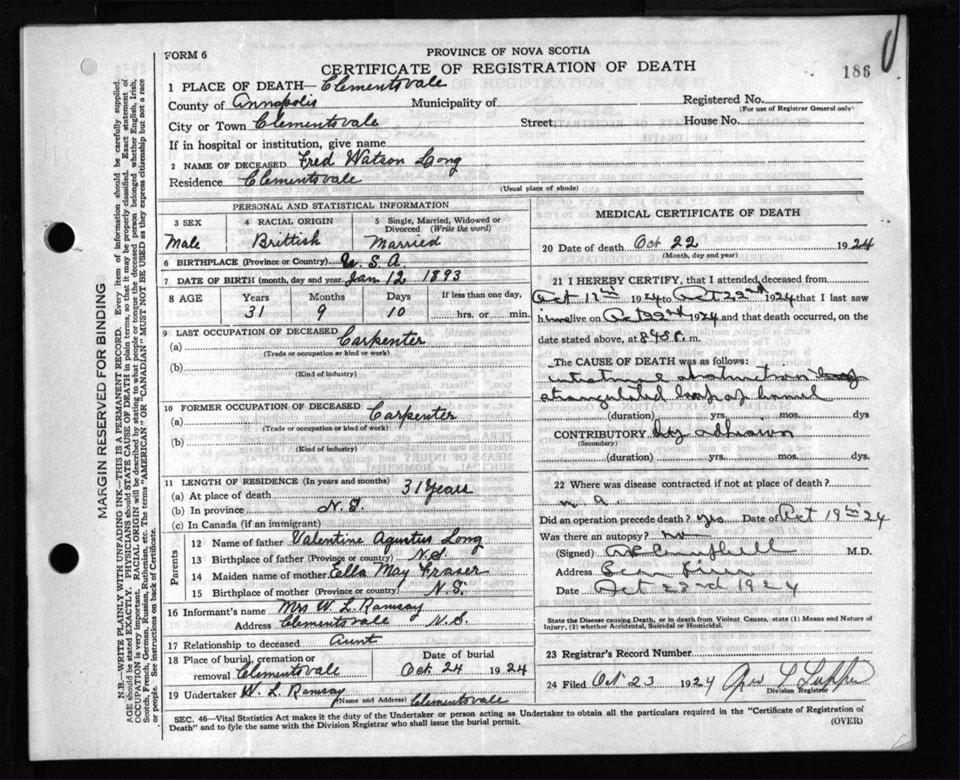 FORM 6
PROVINCE OF NOVA SCOTIA
CERTIFICATE OF REGISTRATION OF DEATH
186
1 PLACE OF DEATH— Clementsvale
County of Annapolis Municipality of
Registered No.
(For use of Registrar General only)
City or Town Clementsvale Street House No.
If in hospital or institution, give name
2 NAME OF DECEASED Fred Watson Long
Residence Clementsvale
(Usual place of abode)
PERSONAL AND STATISTICAL INFORMATION
3 SEX 4 RACIAL ORIGIN 5 Single, Married, Widowed or Divorced (Write the word)
Male Brittish Married
6 BIRTHPLACE (Province or Country) U.S.A
7 DATE OF BIRTH (month, day and year) Jan 12 1893
8 AGE Years Months Days If less than one day,
31 9 10 hrs. or min.
9 LAST OCCUPATION OF DECEASED
(a) Carpenter
(Trade or occupation or kind or work)
(b)
(Kind of industry)
10 FORMER OCCUPATION OF DECEASED
(a) Carpenter
(Trade or occupation or kind of work)
(b)
(Kind of industry)
11 LENGTH OF RESIDENCE (In years and months)
(a) At place of death 31 Years
(b) In province N.S.
(c) In Canada (if an immigrant)
Parents
12 Name of father Valentine Agustus Long
13 Birthplace of father (Province or country) N.S
14 Maiden name of mother Ella May Fraser
15 Birthplace of mother (Province or country) N.S.
16 Informant's name Mrs W. L. Ramsay
Address Clementsvale N.S.
17 Relationship to deceased Aunt
18 Place of burial, cremation or removal Clementsvale
Date of burial
Oct 24 1924
19 Undertaker W. L Ramsay
(Name and Address) Clementsvale
MEDICAL CERTIFICATE OF DEATH
20 Date of death Oct 22 1924
(Month, day and year)
21 I HEREBY CERTIFY, that I attended deceased from
Oct 1924 to Oct 22nd 1924 that I last saw
him alive on Oct 22nd 1924 and that death occurred, on
date stated above, at m.
The CAUSE OF DEATH was as follows:
intestinal obstruction
strangulated loop of bowel
(duration) yrs. mos. dys
CONTRIBUTORY by
(Secondary)
(duration) yrs. mos. dys.
22 Where was disease contracted if not at place of death?
n a.
Did an operation precede death? yes Date of Oct 19th 24
Was there an autopsy? no
(Signed) Campbell M.D.
Address Bear River
Date Oct 23nd 1924
State the Disease causing Death, or in death from Violent Causes, state (1) Means and Nature of Injury, (2) whether Accidental, Suicidal or Homicidal.
23 Registrar's Record Number
24 Filed Oct 23 1924
Division Registrar
SEC. 46—Vital Statistics Act makes it the duty of the Undertaker or person acting as Undertaker to obtain all the particulars required in the "Certificate of Registration of
Death" and to fyle the same with the Division Registrar who shall issue the burial permit.
(OVER)
MARGIN RESERVED FOR BINDING
N.B.—WRITE PLAINLY WITH UNFADING INK—THIS IS A PERMANENT RECORD. Every item of information should be carefully supplied.
AGE should be stated EXACTLY. PHYSICIANS should STATE CAUSE OF DEATH in plain terms, so that it may be properly classified. Exact statement of
OCCUPATION is very important. RACIAL ORIGIN will be described by stating to what people or tongue the deceased person belonged whether English, Irish,
Scotch, French, German, Russian, Ruthenian, etc. The terms "AMERICAN" OR "CANADIAN" MUST NOT BE USED as they express citizenship but not a race
or people. See instructions on back of Certificate.